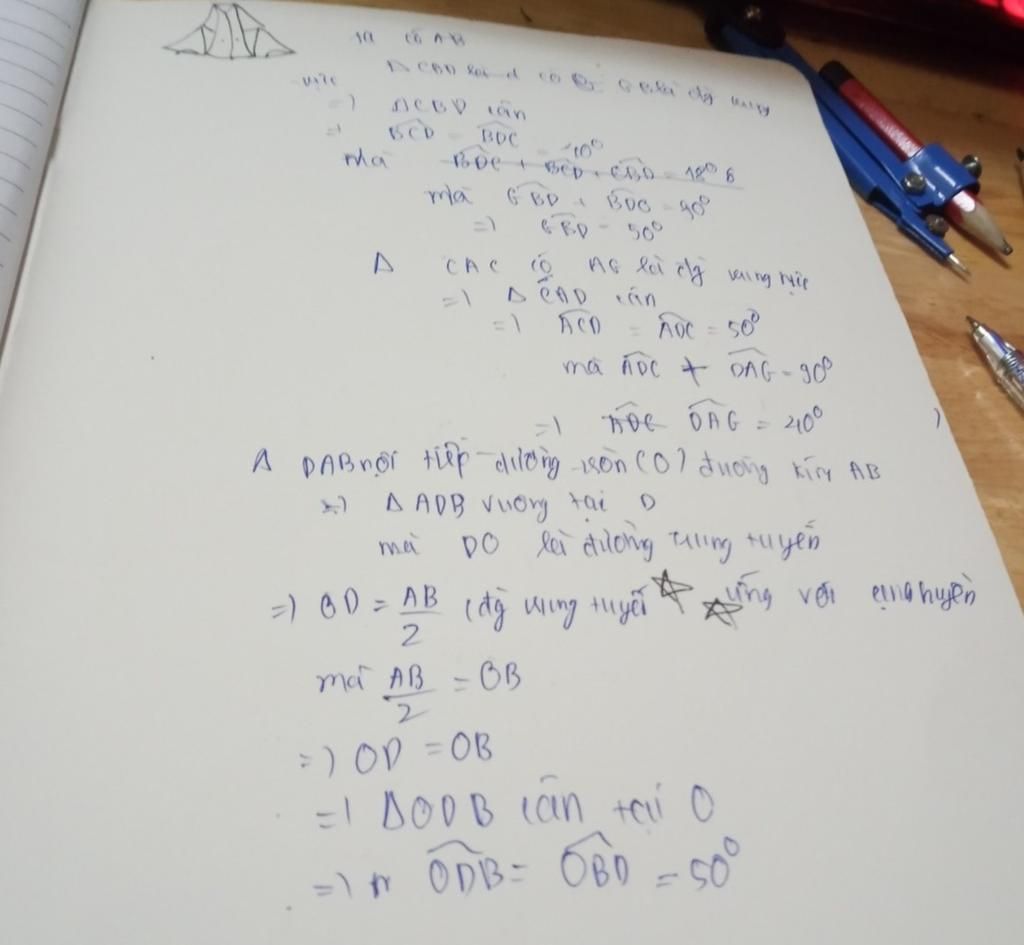 Ta có AB
Δ CBD có là đg trung
trực
=) ΔCBD cân
=) BCD = BDC
= 40°
Mà BDC + BCD + CBD = 180
mà GBD + BDG = 90°
=) GBD = 50°
Δ CAC có AG là đg trung trực
=) Δ CAD cân
=) ACD = ADC = 50°
mà ADC + DAG = 90°
=) ADC DAG = 40°
Δ DAB nội tiếp đường tròn (O) đường kín AB
=) Δ ADB vuông tại D
mà DO là đường trung tuyến
=) OD = AB/2 (đg trung tuyến ứng với cạnh huyền
mà AB/2 = OB
=) OD = OB
=) ΔODB cân tại O
=) ODB = OBD = 50°